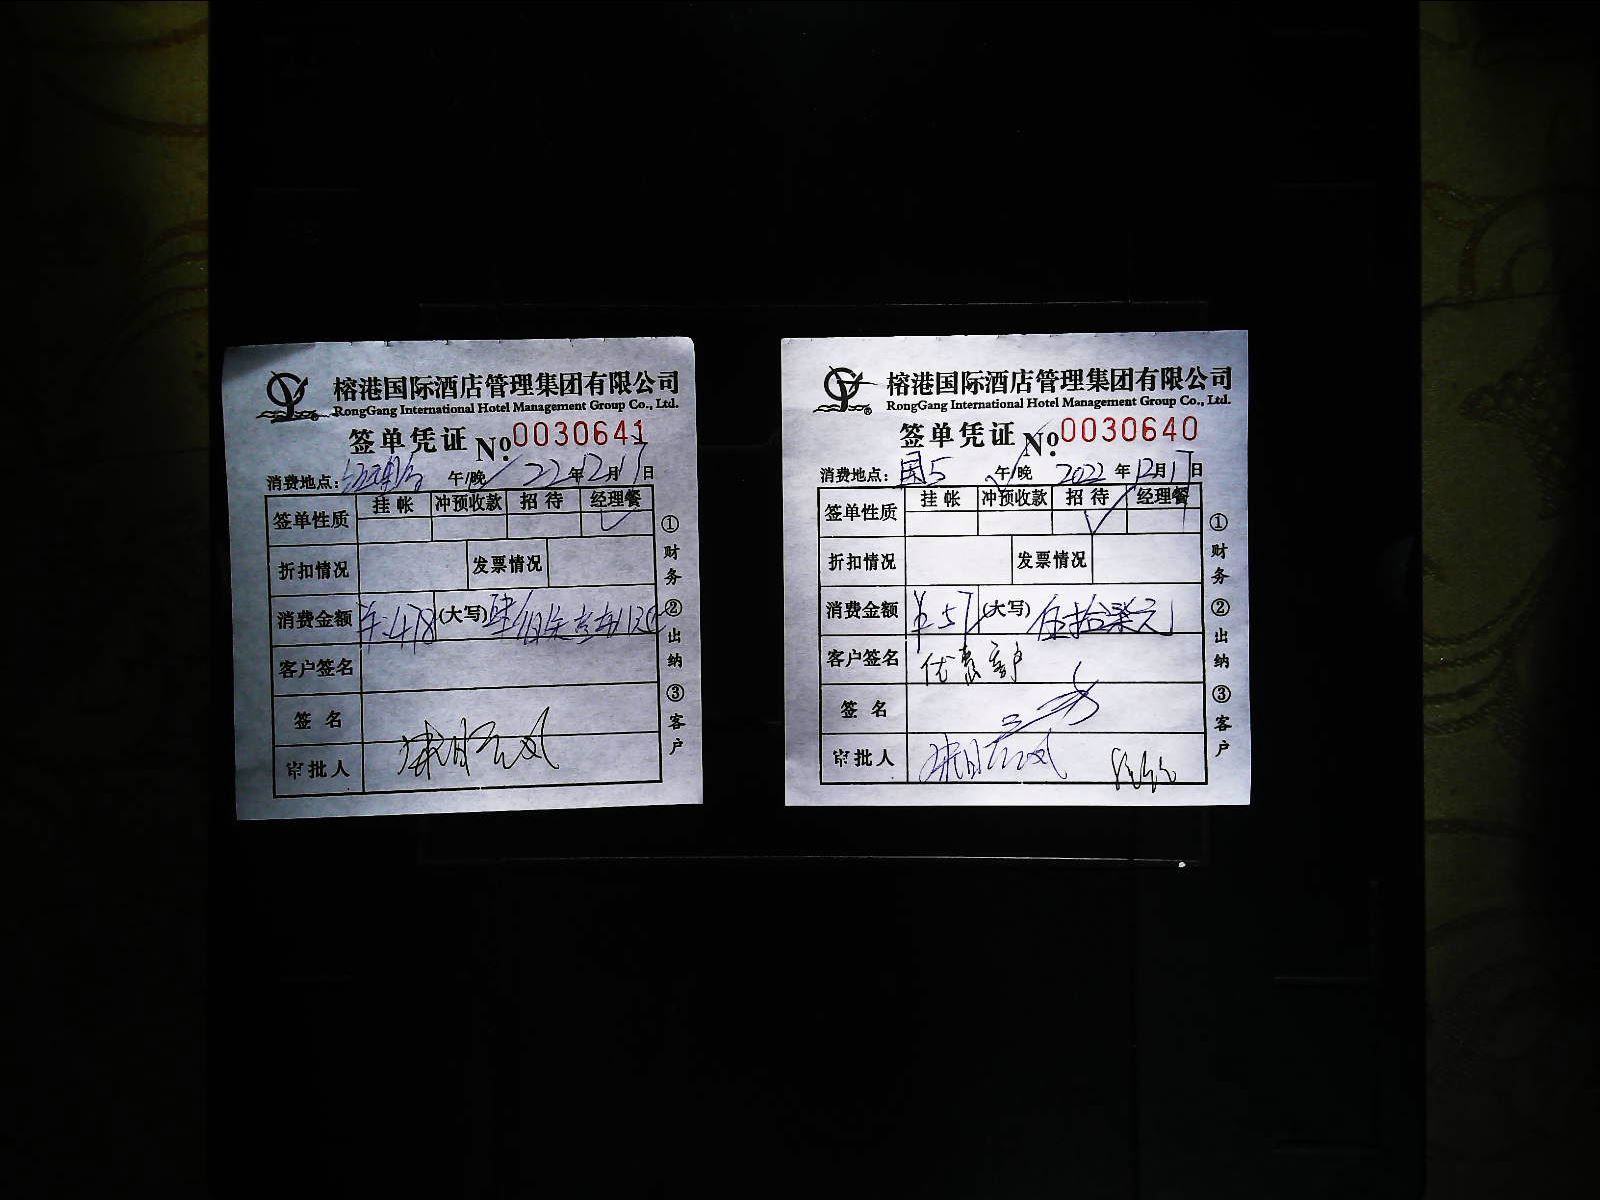 榕港国际酒店管理集团有限公司
RongGang International Hotel Management Group Co., Ltd.
签单凭证 No. 0030641
消费地点: 午/晚 22年12月17日
签单性质 挂帐 冲预收款 招待 经理餐
折扣情况 发票情况
消费金额 (大写)
客户签名
签名
审批人
①财务 ②出纳 ③客户
榕港国际酒店管理集团有限公司
RongGang International Hotel Management Group Co., Ltd.
签单凭证 No. 0030640
消费地点: 国5 午/晚 2022年12月17日
签单性质 挂帐 冲预收款 招待 经理餐
折扣情况 发票情况
消费金额 ¥57 (大写) 伍拾柒元
客户签名 优惠客户
签名
审批人
①财务 ②出纳 ③客户